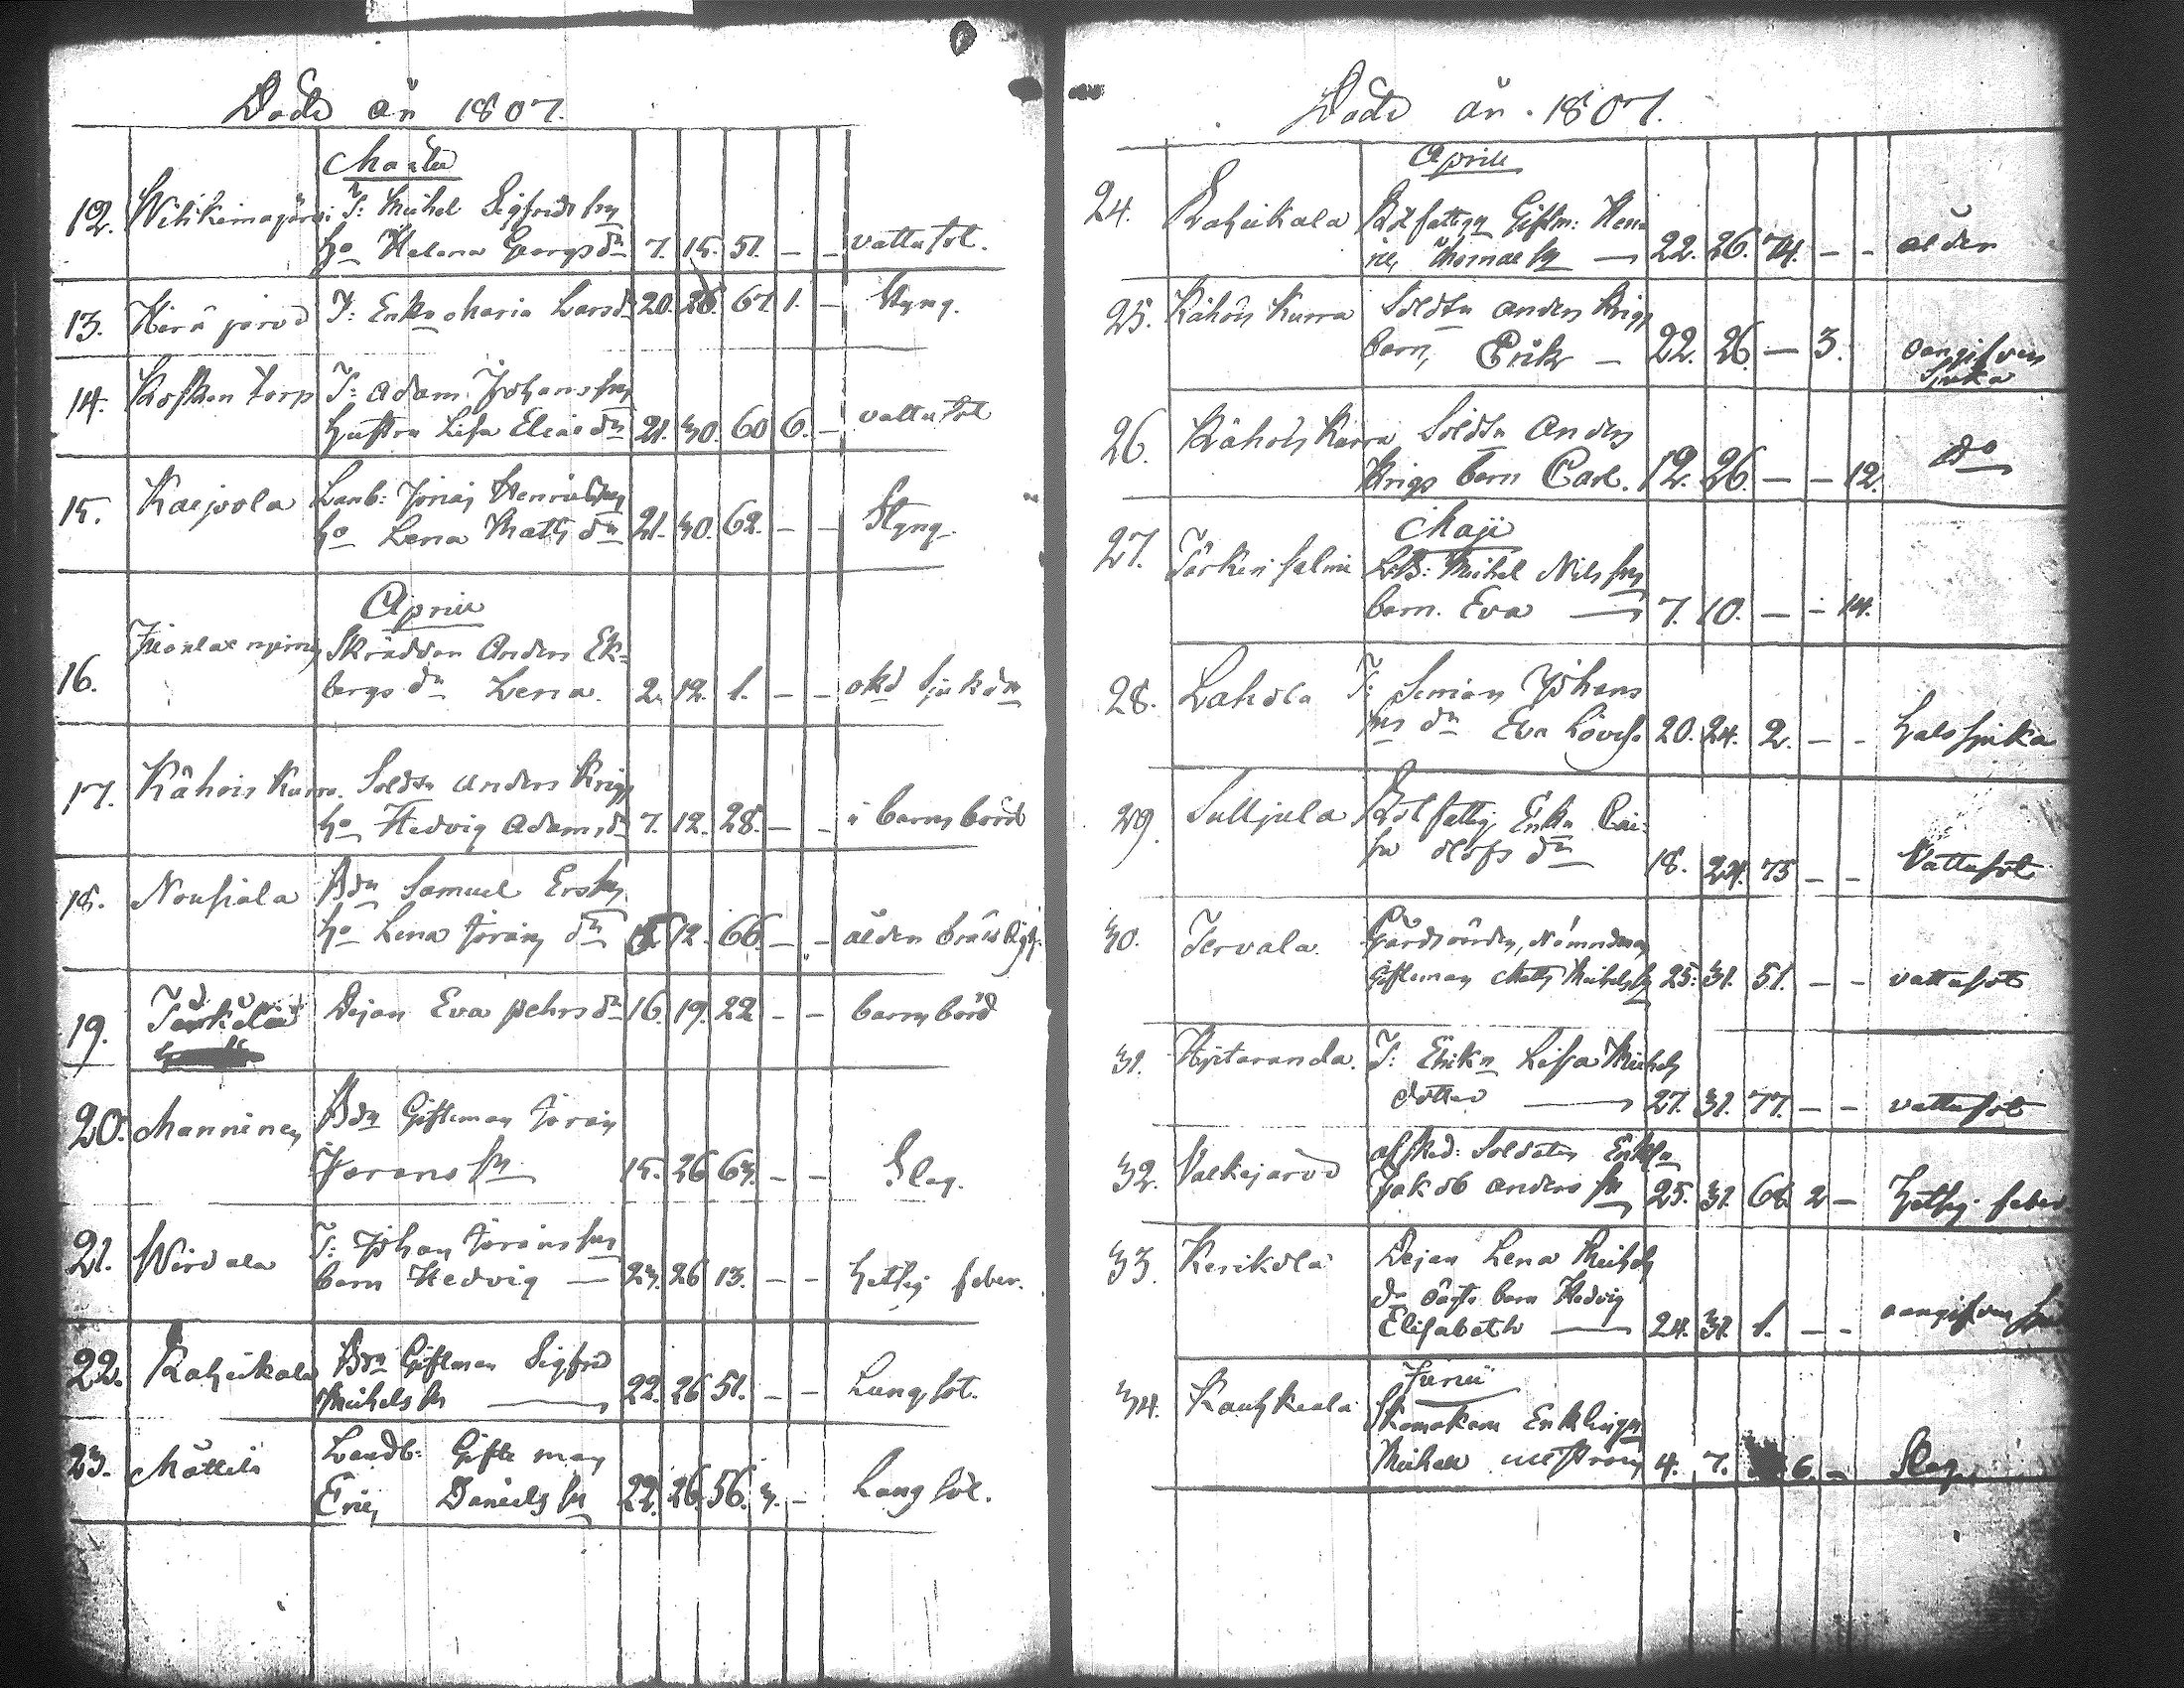 Döde år 1807.
Martii
12. Wihkemajärvi T: Michel Sigfrids sn
ho Helena Georgs dr 7. 15. 51. - - vattusot.
13. Härä järvi T: Enka Maria Larsdr 20. 26. 67. 1. - Styng.
14. Kosken torp T: Adam Johans sn
hustru Lisa Elias dr 21. 30. 60 6. - vattusot
15. Kaipola Lanb: Jöran Henricssn
ho Lena Matts dr 21. 30. 62. - - Styng.
Aprill
16. Skräddn Anders Ek=
bergs dr Lena. 2. 12. 1. - - okd sjukdm
17. Kähöis Kurra. Soldtn Anders Krigs
ho Hedvig Adamsdr 7. 12. 28. - - i barnsbörd
18. Nousiala Bdn Samuel Erssn
ho Lena Jörans dr 12. 66. - - ålderdoms
19. Pejan Eva Pehrs dr 16. 19. 22 - - barnsbörd
20. Manninen Bdn Gifteman Jöran
Jörans sn 15. 26 63. - - Slag.
21. Wirvala T: Johan Jörans sn
barn Hedvig - 23. 26 13. - - hetsig feber.
22. Raheikala Bdn Giftman Sigfrid
Michels sn 22. 26 51. - - Lungsot.
23. Mattila Landb: Gifte man
Eric Daniels sn 22. 26. 56. 3. - Lungsot.
Döde år. 1807.
Aprill
24. Raheikala Rotfattign Giftm: Hen
ric Thomae sn 22. 26. 74. - - ålder
25. Kähöis Kurra Soldtn Anders Krigs
barn, Erik - 22. 26 - 3. oangifven
sjuka
26. Kähöis Kurra Soldtn Anders
Krigs barn Carl. 12. 26. - - 12. do
Maji
27. Tarkin salmi LB: Michel Nils sn
barn. Eva 7. 10. - - 14.
28. Lahdla T: Simon Johans
sns dr Eva Lovisa 20. 24. 2. - - halssjuka
29. Sulljula Rotfattig Enka Cai=
sa Olofs dr 18. 24. 75 - - Vattusot
30. Tervala. Gårdvärden, Nämndeman
Gifteman Matts Michelssn 25. 31. 51. - - vattusot
31. Hytaranda. T: Enkn Lissa Michels
dotter 27. 31. 77. - - vattusot
32. Valkejärvi afsked: Soldaten Enkln
Jakob Anders sn 25. 31. 68. 2 - hetsig feber
33. Kerikola Pejan Lena Michels
dr oägta barn Hedvig
Elisabeth 24. 31. 1. - - oangifven
Junii
34. Kauhkeala Skomakarn Enklingn
4. 7. 6. - Slag.